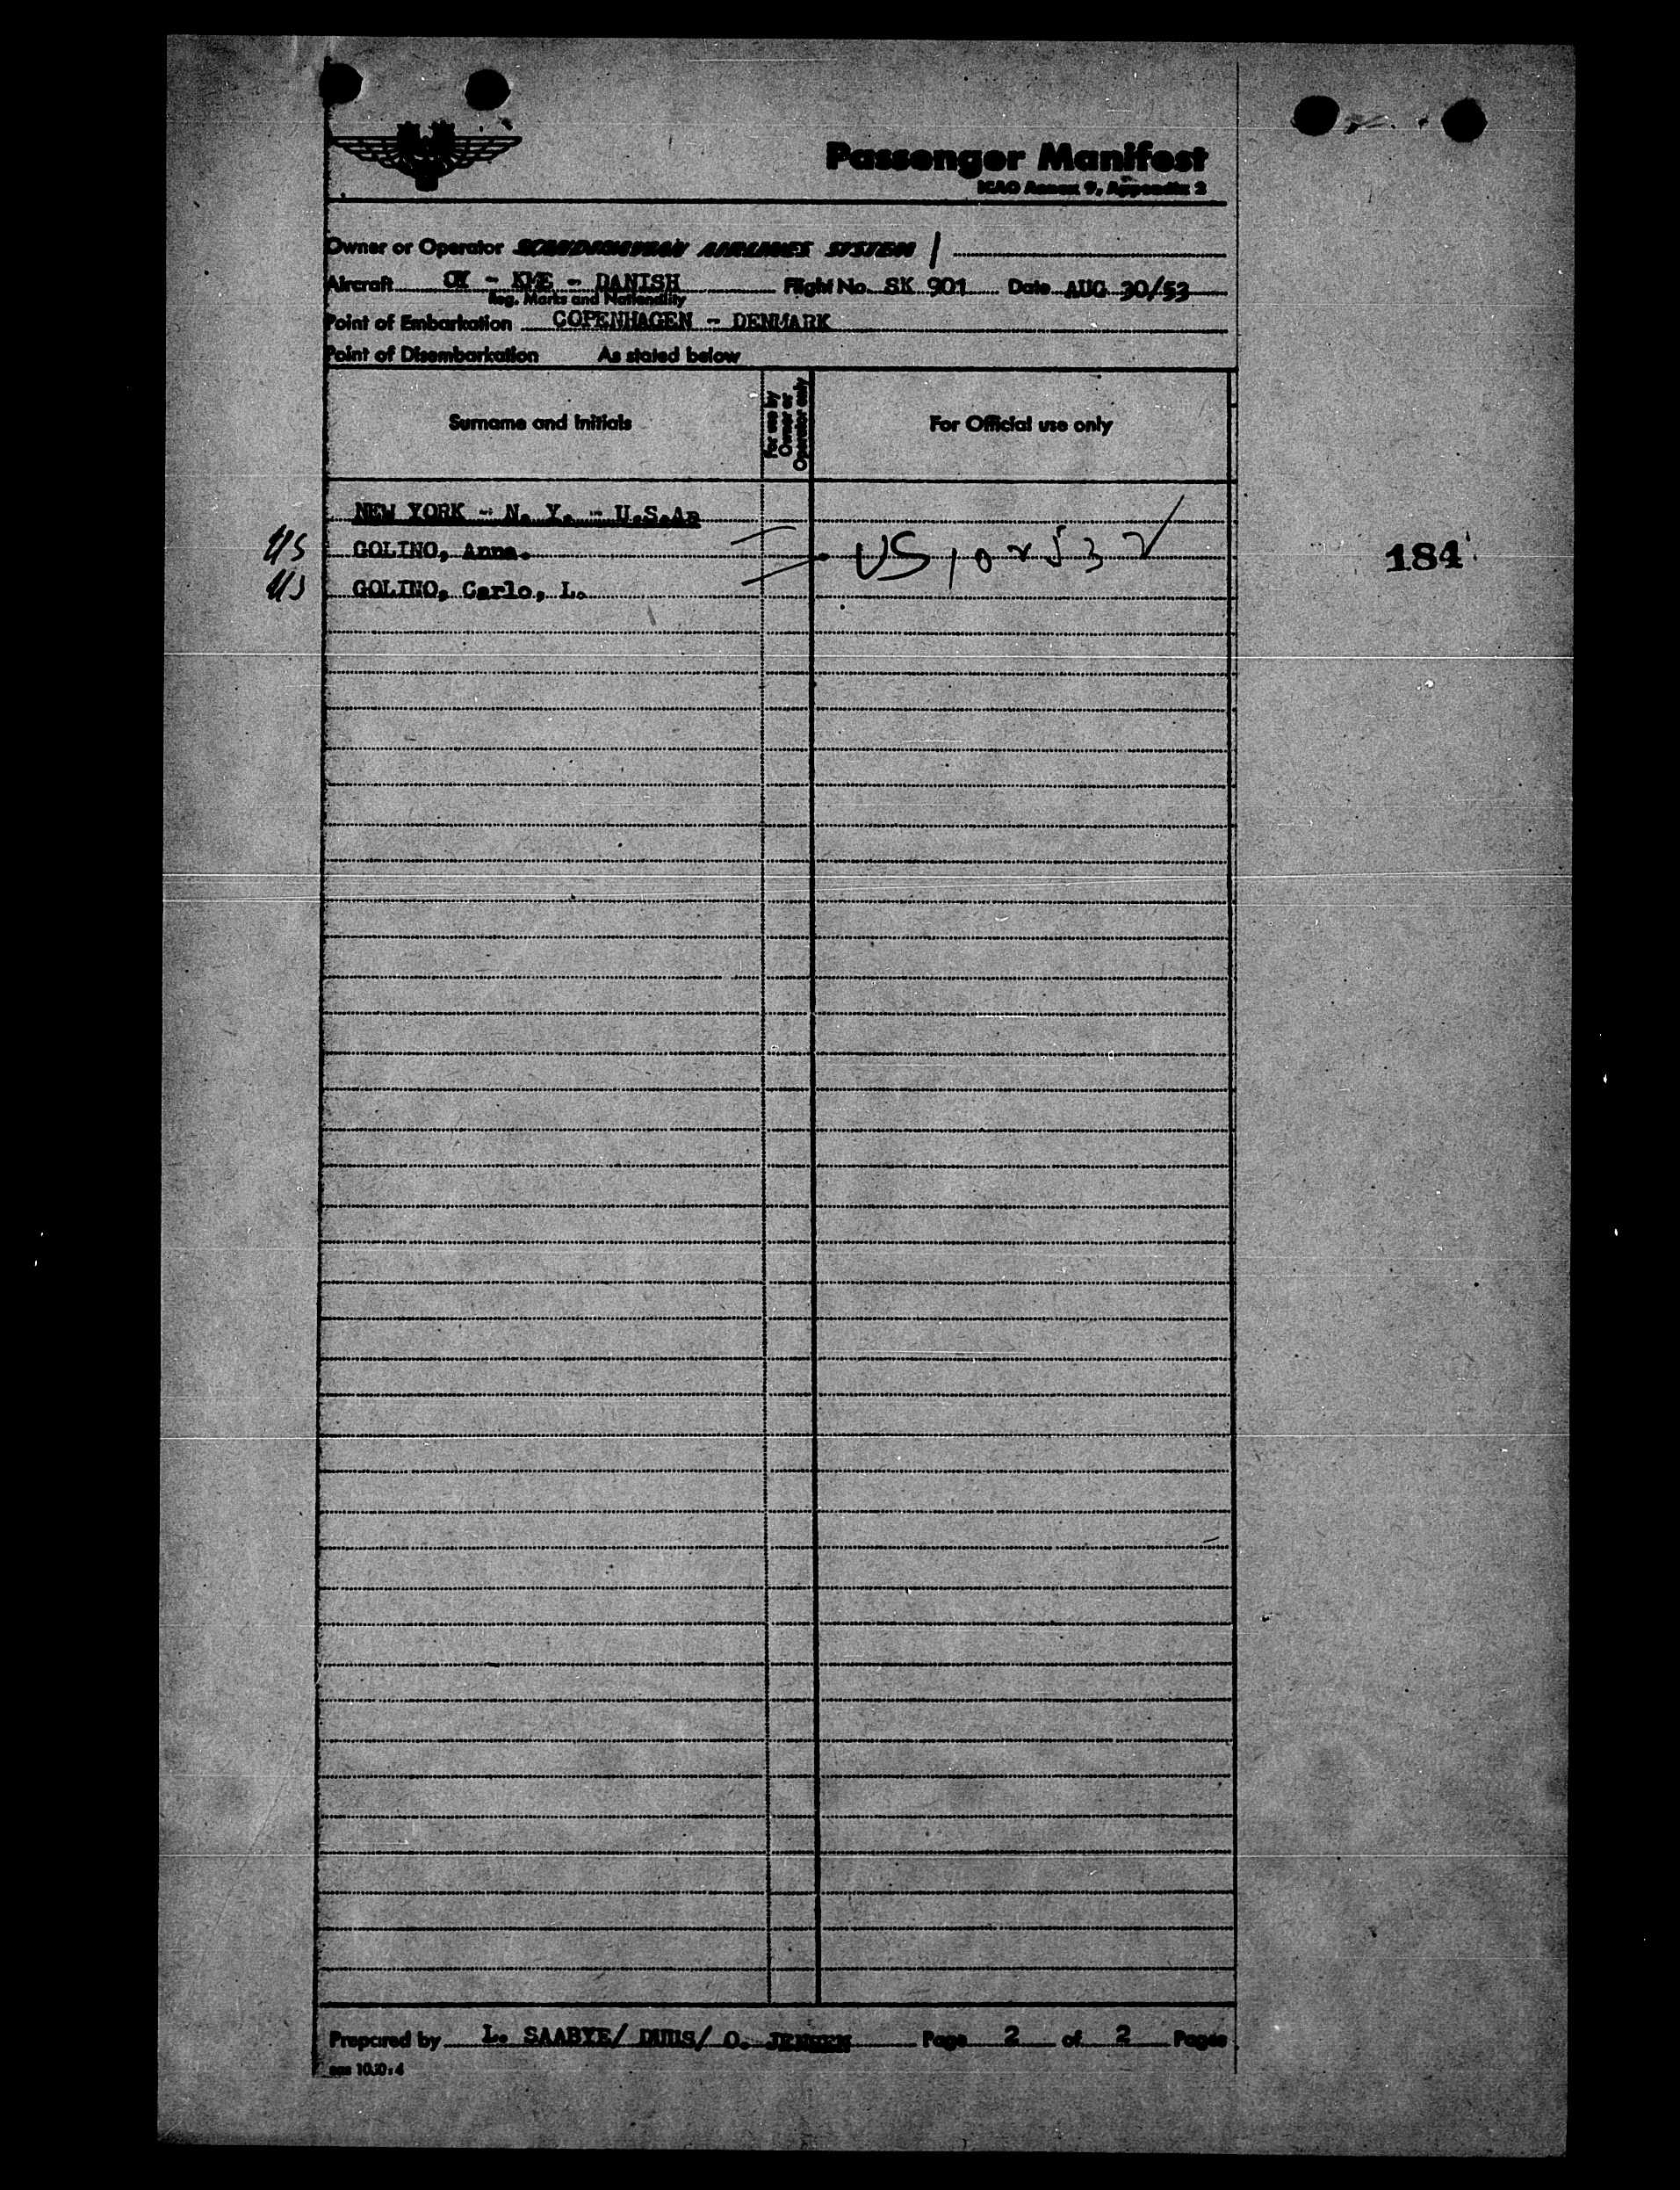 Passenger Manifest
ICAO Annex 9, Appendix 2
Owner or Operator SCANDINAVIAN AIRLINES SYSTEM
Aircraft OY - KME - DANISH Flight No. SK 901 Date AUG 30/53
Reg. Marks and Nationality
Point of Embarkation COPENHAGEN - DENMARK
Point of Disembarkation As stated below
Surname and Initials
For use by Owner or Operator only
For Official use only
NEW YORK - N. Y. - U.S.A.
US GOLINO, Anna. US 184
US GOLINO, Carlo, L.
Prepared by L. SAABYE/ O. JENSEN Page 2 of 2 Pages